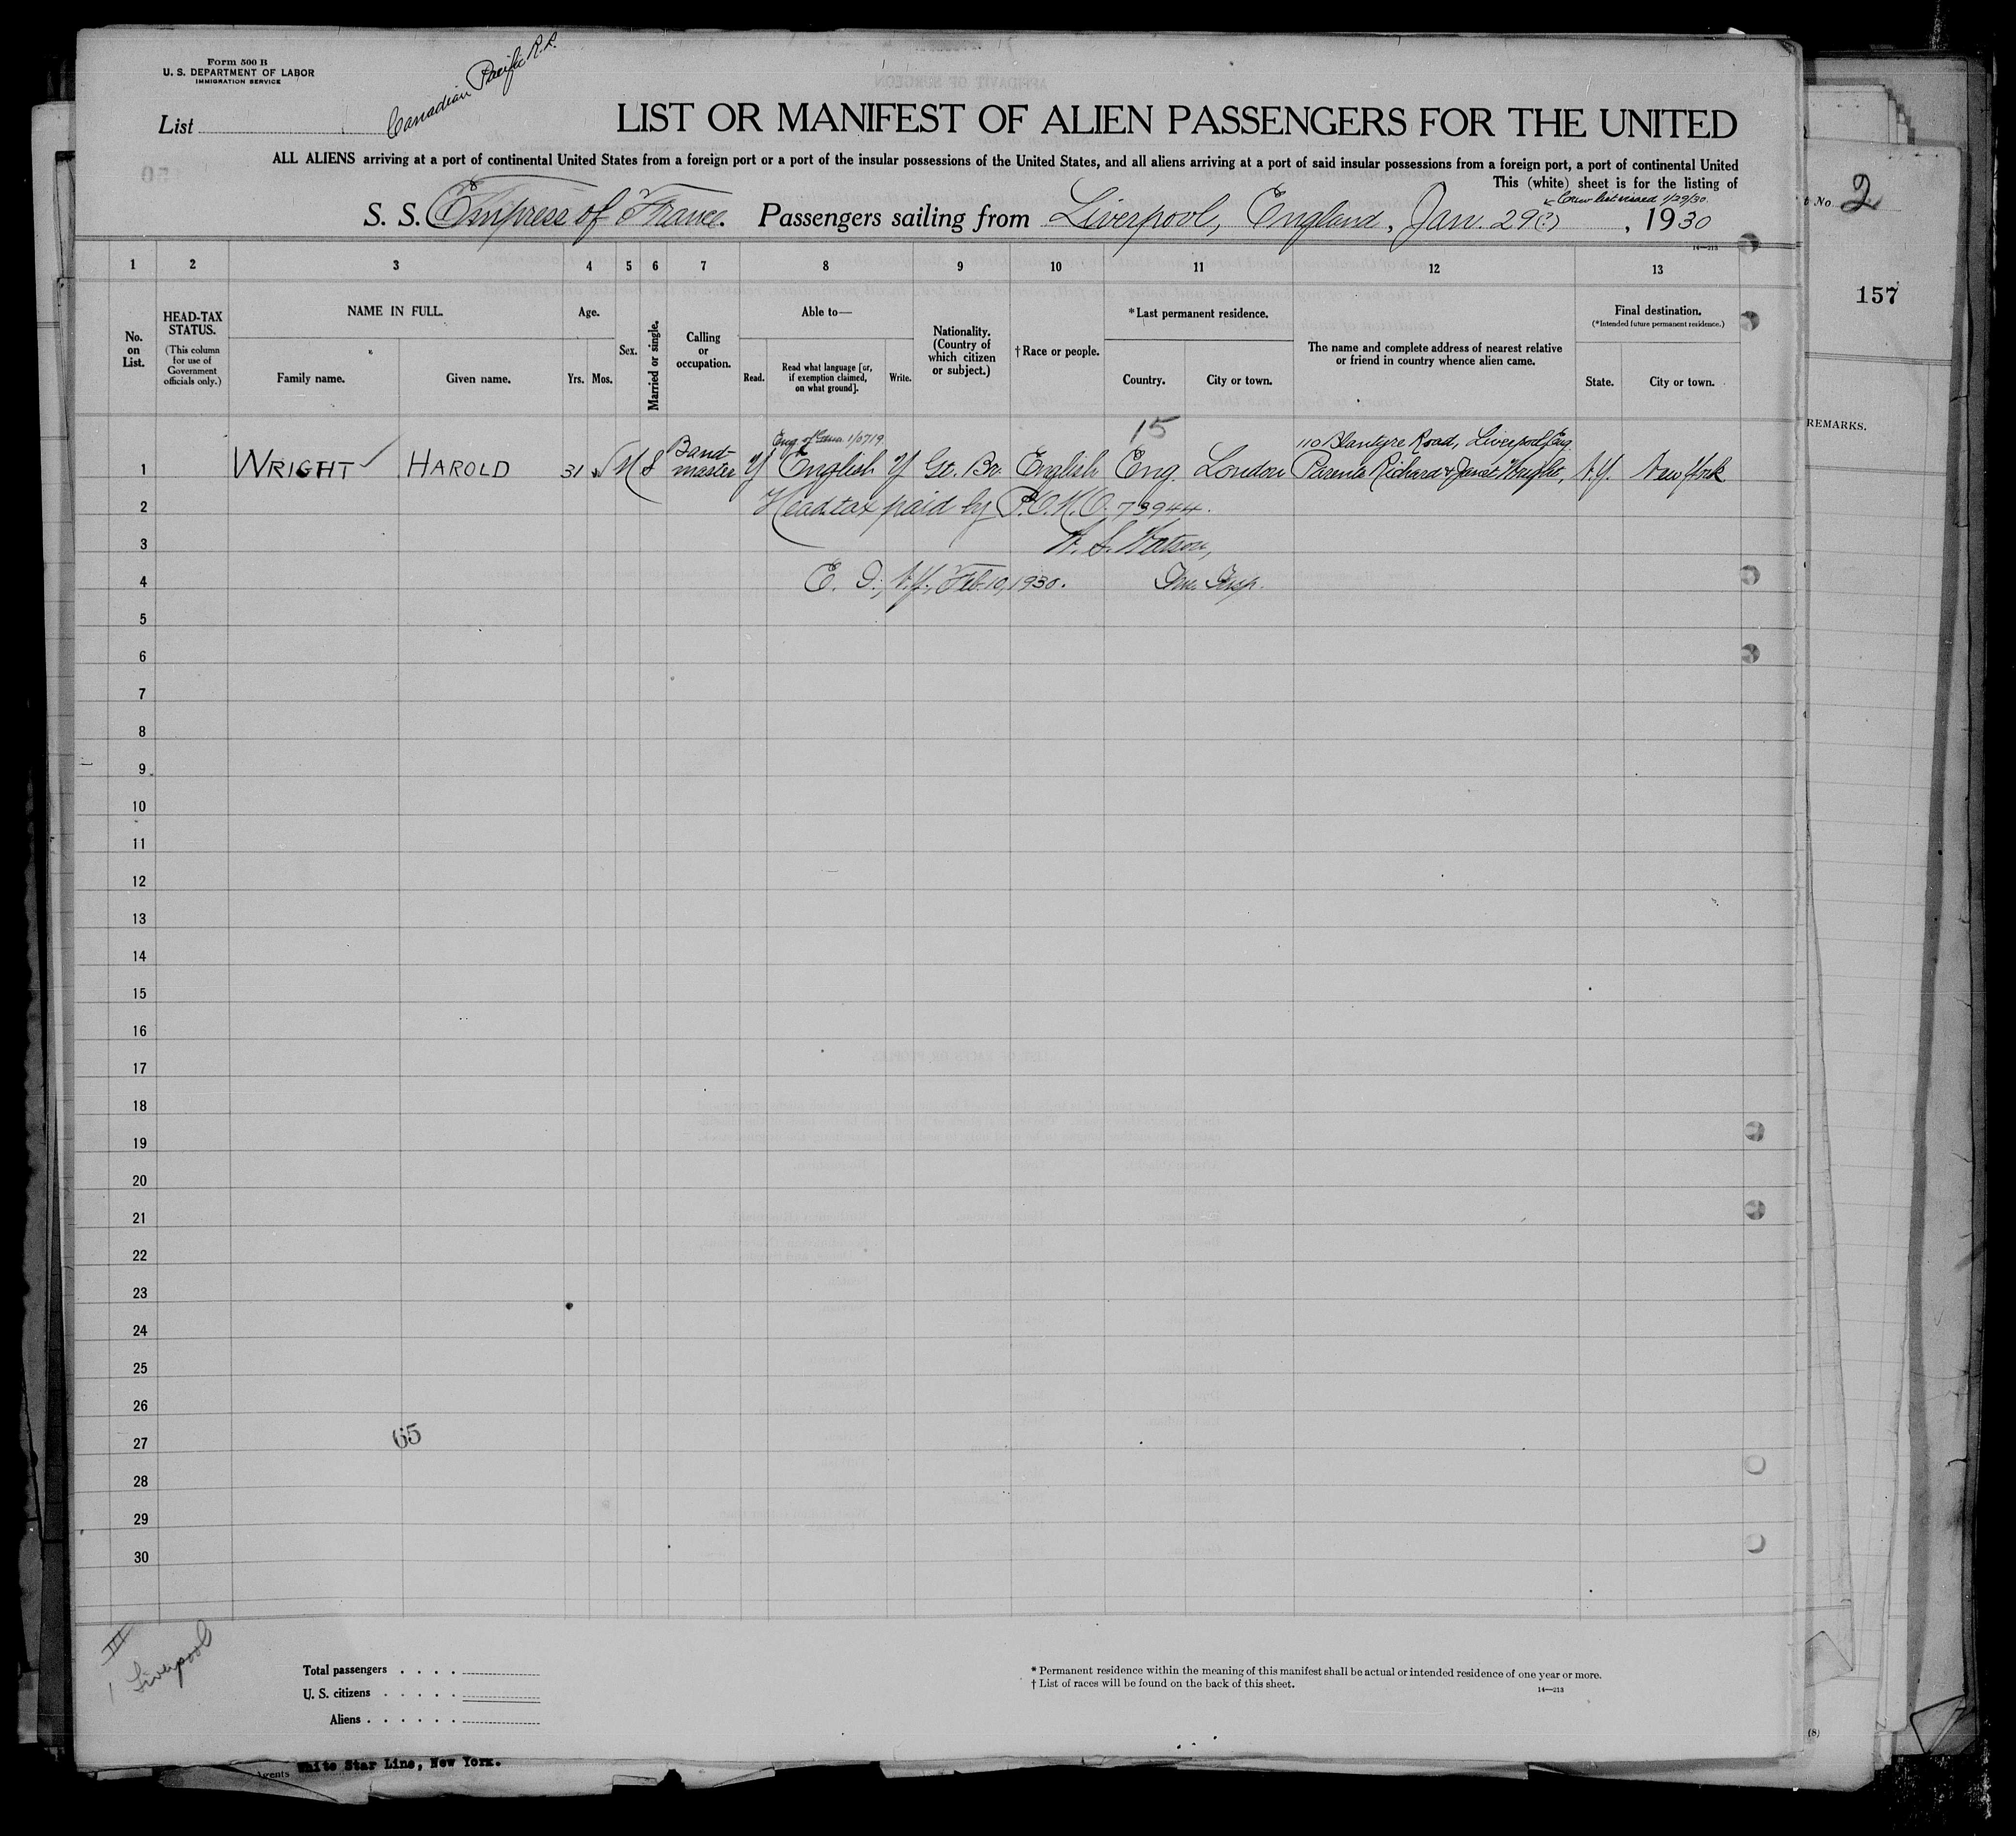 Form 500 B
U. S. DEPARTMENT OF LABOR
IMMIGRATION SERVICE
Canadian Pacific R.R.
List
LIST OR MANIFEST OF ALIEN PASSENGERS FOR THE UNITED
ALL ALIENS arriving at a port of continental United States from a foreign port or a port of the insular possessions of the United States, and all aliens arriving at a port of said insular possessions from a foreign port, a port of continental United
This (white) sheet is for the listing of
Crew list visaed 1/29/30.
S. S. Empress of France. Passengers sailing from Liverpool, England, Jan. 29(?), 1930
14—213
t No 2
157
REMARKS.
1 2 3 4 5 6 7 8 9 10 11 12 13
No. on List.
HEAD-TAX STATUS.
(This column for use of Government officials only.)
NAME IN FULL.
Family name. Given name.
Age.
Yrs. Mos.
Sex.
Married or single.
Calling or occupation.
Able to—
Read. Read what language [or, if exemption claimed, on what ground]. Write.
Nationality. (Country of which citizen or subject.)
†Race or people.
*Last permanent residence.
Country. City or town.
The name and complete address of nearest relative or friend in country whence alien came.
Final destination.
(*Intended future permanent residence.)
State. City or town.
15
110 Blantyre Road, Liverpool, Eng.
1 WRIGHT HAROLD 31 M S Band-master Y English Y Gt. Br. English Eng. London Parents Richard & Janet Wright, N.Y. New York
2 Head tax paid by P.O.M.O. 73944.
3 W. S. Watson,
4 E. I., N.Y., Feb. 10, 1930. Imm. Insp.
5
6
7
8
9
10
11
12
13
14
15
16
17
18
19
20
21
22
23
24
25
26
27
65
28
29
30
III
1 Liverpool
Total passengers
U. S. citizens
Aliens
* Permanent residence within the meaning of this manifest shall be actual or intended residence of one year or more.
† List of races will be found on the back of this sheet.
14—213
(8)
Agents White Star Line, New York.